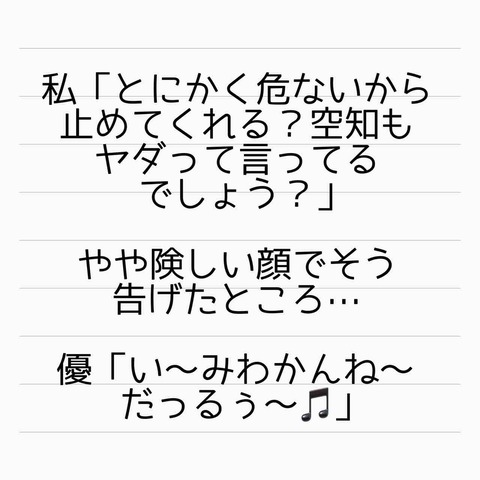 私「とにかく危ないから
止めてくれる？空知も
ヤダって言ってる
でしょう？」
やや険しい顔でそう
告げたところ…
優「い〜みわかんね〜
だっるぅ〜🎵」